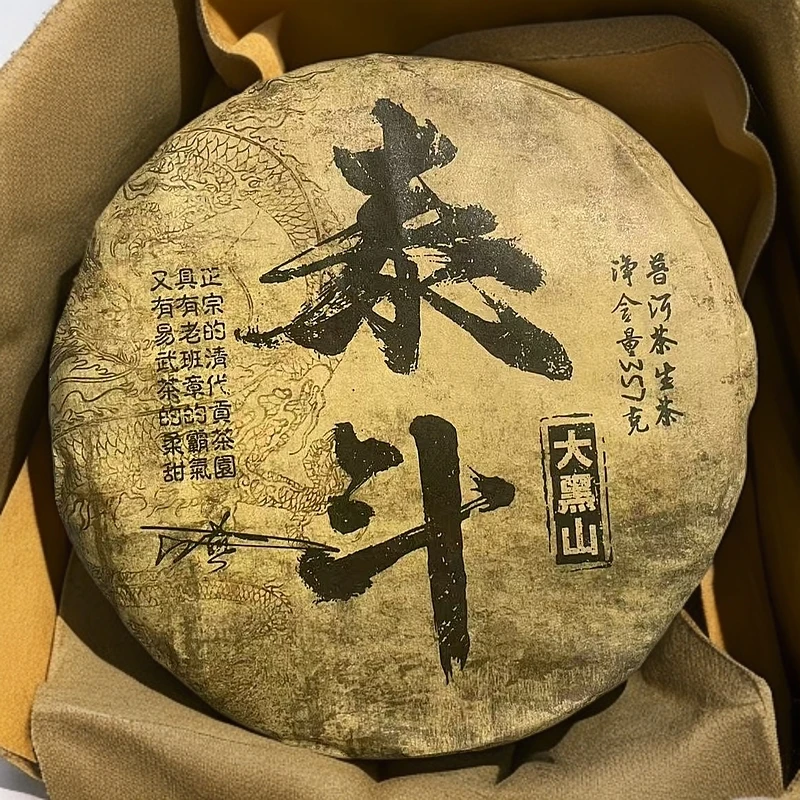 泰斗
普洱茶生茶
净含量357克
大黑山
正宗的清代貢茶園
具有老班章的霸氣
又有易武茶的柔甜